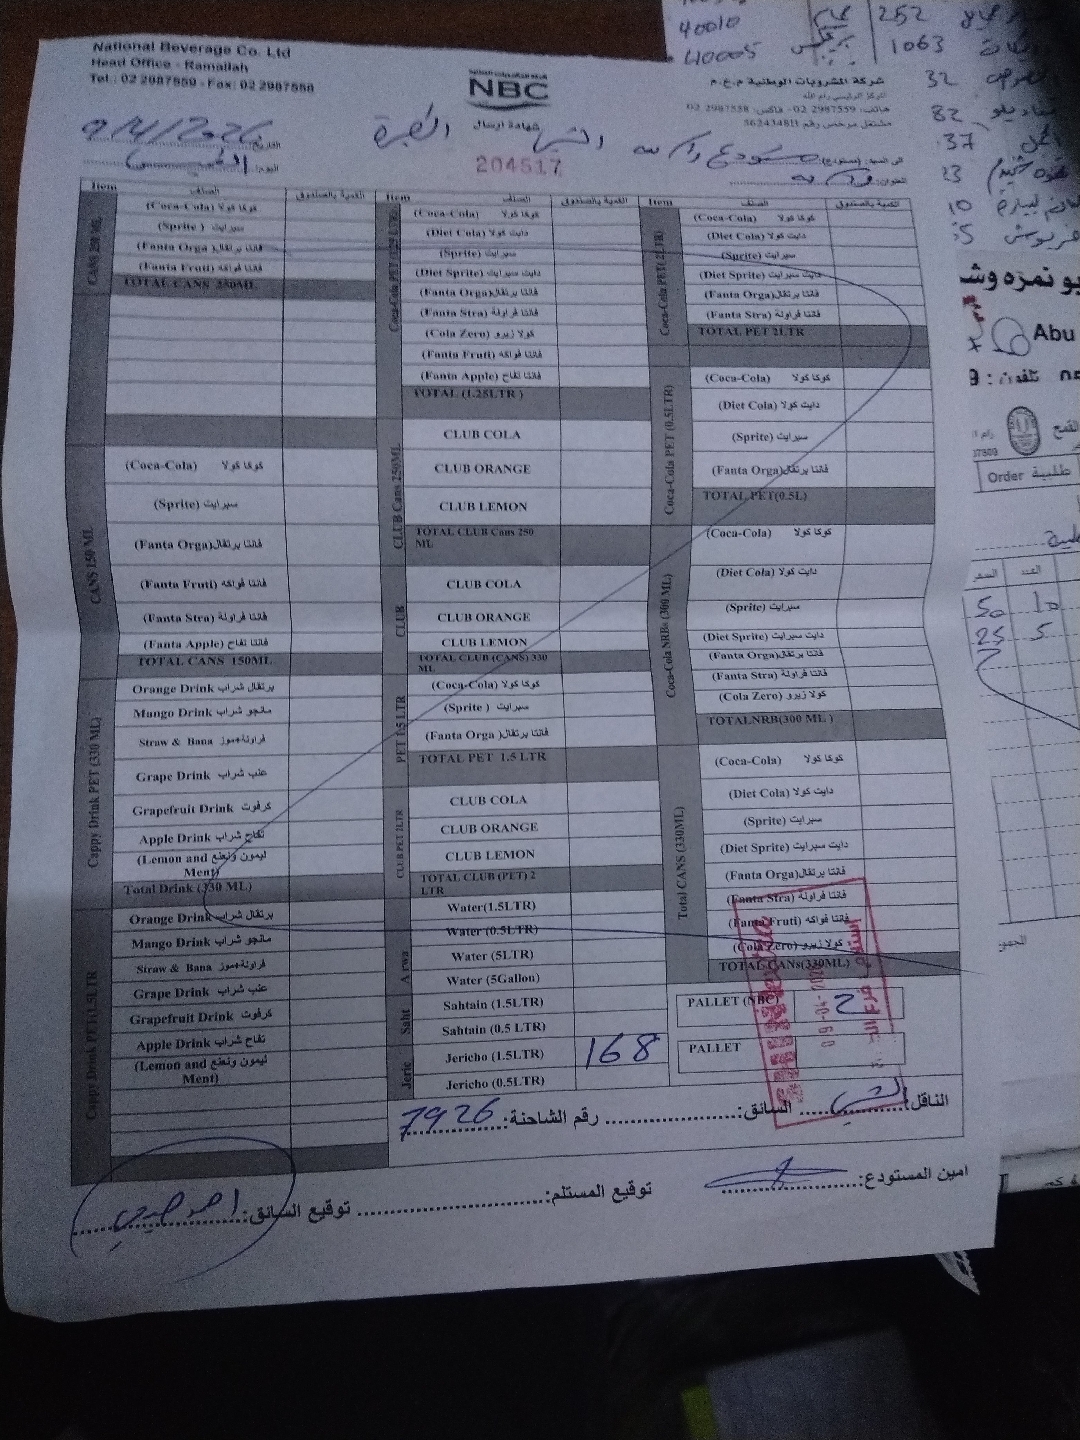 National Beverage Co. Ltd
Head Office - Ramallah
Tel : 02 2987559 - Fax: 02 2987558
NBC
شركة المشروبات الوطنية م.ع.م
المركز الرئيسي رام الله
هاتف: 2987559 02 - فاكس: 2987558 02
مشتغل مرخص رقم 562434811
شهادة ارسال
204517
التاريخ: 9/4/2026
اليوم: الخميس
Item الصنف الكمية بالصندوق
CANS 250 ML
(Coca-Cola) كوكا كولا
(Sprite ) سبرايت
(Fanta Orga )فانتا برتقال
(Fanta Fruti) فانتا فواكه
TOTAL CANS 250ML
CANS 150 ML
(Coca-Cola) كوكا كولا
(Sprite) سبرايت
(Fanta Orga)فانتا برتقال
(Fanta Fruti) فانتا فواكه
(Fanta Stra) فانتا فراولة
(Fanta Apple) فانتا تفاح
TOTAL CANS 150ML
Cappy Drink PET (330 ML)
Orange Drink برتقال شراب
Mango Drink مانجو شراب
Straw & Bana فراولة+موز
Grape Drink عنب شراب
Grapefruit Drink كرفوت
Apple Drink تفاح شراب
(Lemon and ليمون ونعنع
Ment)
Total Drink (330 ML)
Cappy Drink PET(1.5LTR
Orange Drink برتقال شراب
Mango Drink مانجو شراب
Straw & Bana فراولة+موز
Grape Drink عنب شراب
Grapefruit Drink كرفوت
Apple Drink تفاح شراب
(Lemon and ليمون ونعنع
Ment)
Item الصنف الكمية بالصندوق
(Coca-Cola) كوكا كولا
(Diet Cola) دايت كولا
(Sprite) سبرايت
(Diet Sprite) دايت سبرايت
(Fanta Orga)فانتا برتقال
(Fanta Stra) فانتا فراولة
(Cola Zero) كولا زيرو
(Fanta Fruti) فانتا فواكه
(Fanta Apple) فانتا تفاح
TOTAL (1.25LTR )
CLUB Cans 250ML
CLUB COLA
CLUB ORANGE
CLUB LEMON
TOTAL CLUB Cans 250
ML
CLUB
CLUB COLA
CLUB ORANGE
CLUB LEMON
TOTAL CLUB (CANS) 330
ML
PET 1.5 LTR
(Coca-Cola) كوكا كولا
(Sprite ) سبرايت
(Fanta Orga )فانتا برتقال
TOTAL PET 1.5 LTR
CLUB PET 2LTR
CLUB COLA
CLUB ORANGE
CLUB LEMON
TOTAL CLUB (PET) 2
LTR
Arwa
Water(1.5LTR)
Water (0.5LTR)
Water (5LTR)
Water (5Gallon)
Saht
Sahtain (1.5LTR)
Sahtain (0.5 LTR)
Jeric
Jericho (1.5LTR) 168
Jericho (0.5LTR)
Item الصنف الكمية بالصندوق
Coca-Cola PET( 2LTR)
(Coca-Cola) كوكا كولا
(Diet Cola) دايت كولا
(Sprite) سبرايت
(Diet Sprite) دايت سبرايت
(Fanta Orga)فانتا برتقال
(Fanta Stra) فانتا فراولة
TOTAL PET 2LTR
Coca-Cola PET (0.5LTR)
(Coca-Cola) كوكا كولا
(Diet Cola) دايت كولا
(Sprite) سبرايت
(Fanta Orga)فانتا برتقال
TOTAL PET(0.5L)
Coca-Cola NRBs (300 ML)
(Coca-Cola) كوكا كولا
(Diet Cola) دايت كولا
(Sprite) سبرايت
(Diet Sprite) دايت سبرايت
(Fanta Orga)فانتا برتقال
(Fanta Stra) فانتا فراولة
(Cola Zero) كولا زيرو
TOTALNRB(300 ML )
Total CANS (330ML)
(Coca-Cola) كوكا كولا
(Diet Cola) دايت كولا
(Sprite) سبرايت
(Diet Sprite) دايت سبرايت
(Fanta Orga)فانتا برتقال
(Fanta Stra) فانتا فراولة
(Fanta Fruti) فانتا فواكه
(Cola Zero) كولا زيرو
TOTAL CANs(330ML)
PALLET (NBC) 2
PALLET
الناقل: السائق: رقم الشاحنة: 7926
امين المستودع: توقيع المستلم: توقيع السائق:
40010
40005
252
1063
32
82
37
23
10
5
Abu
تلفون :
Order طلبية
السعر العدد
50 10
25 5